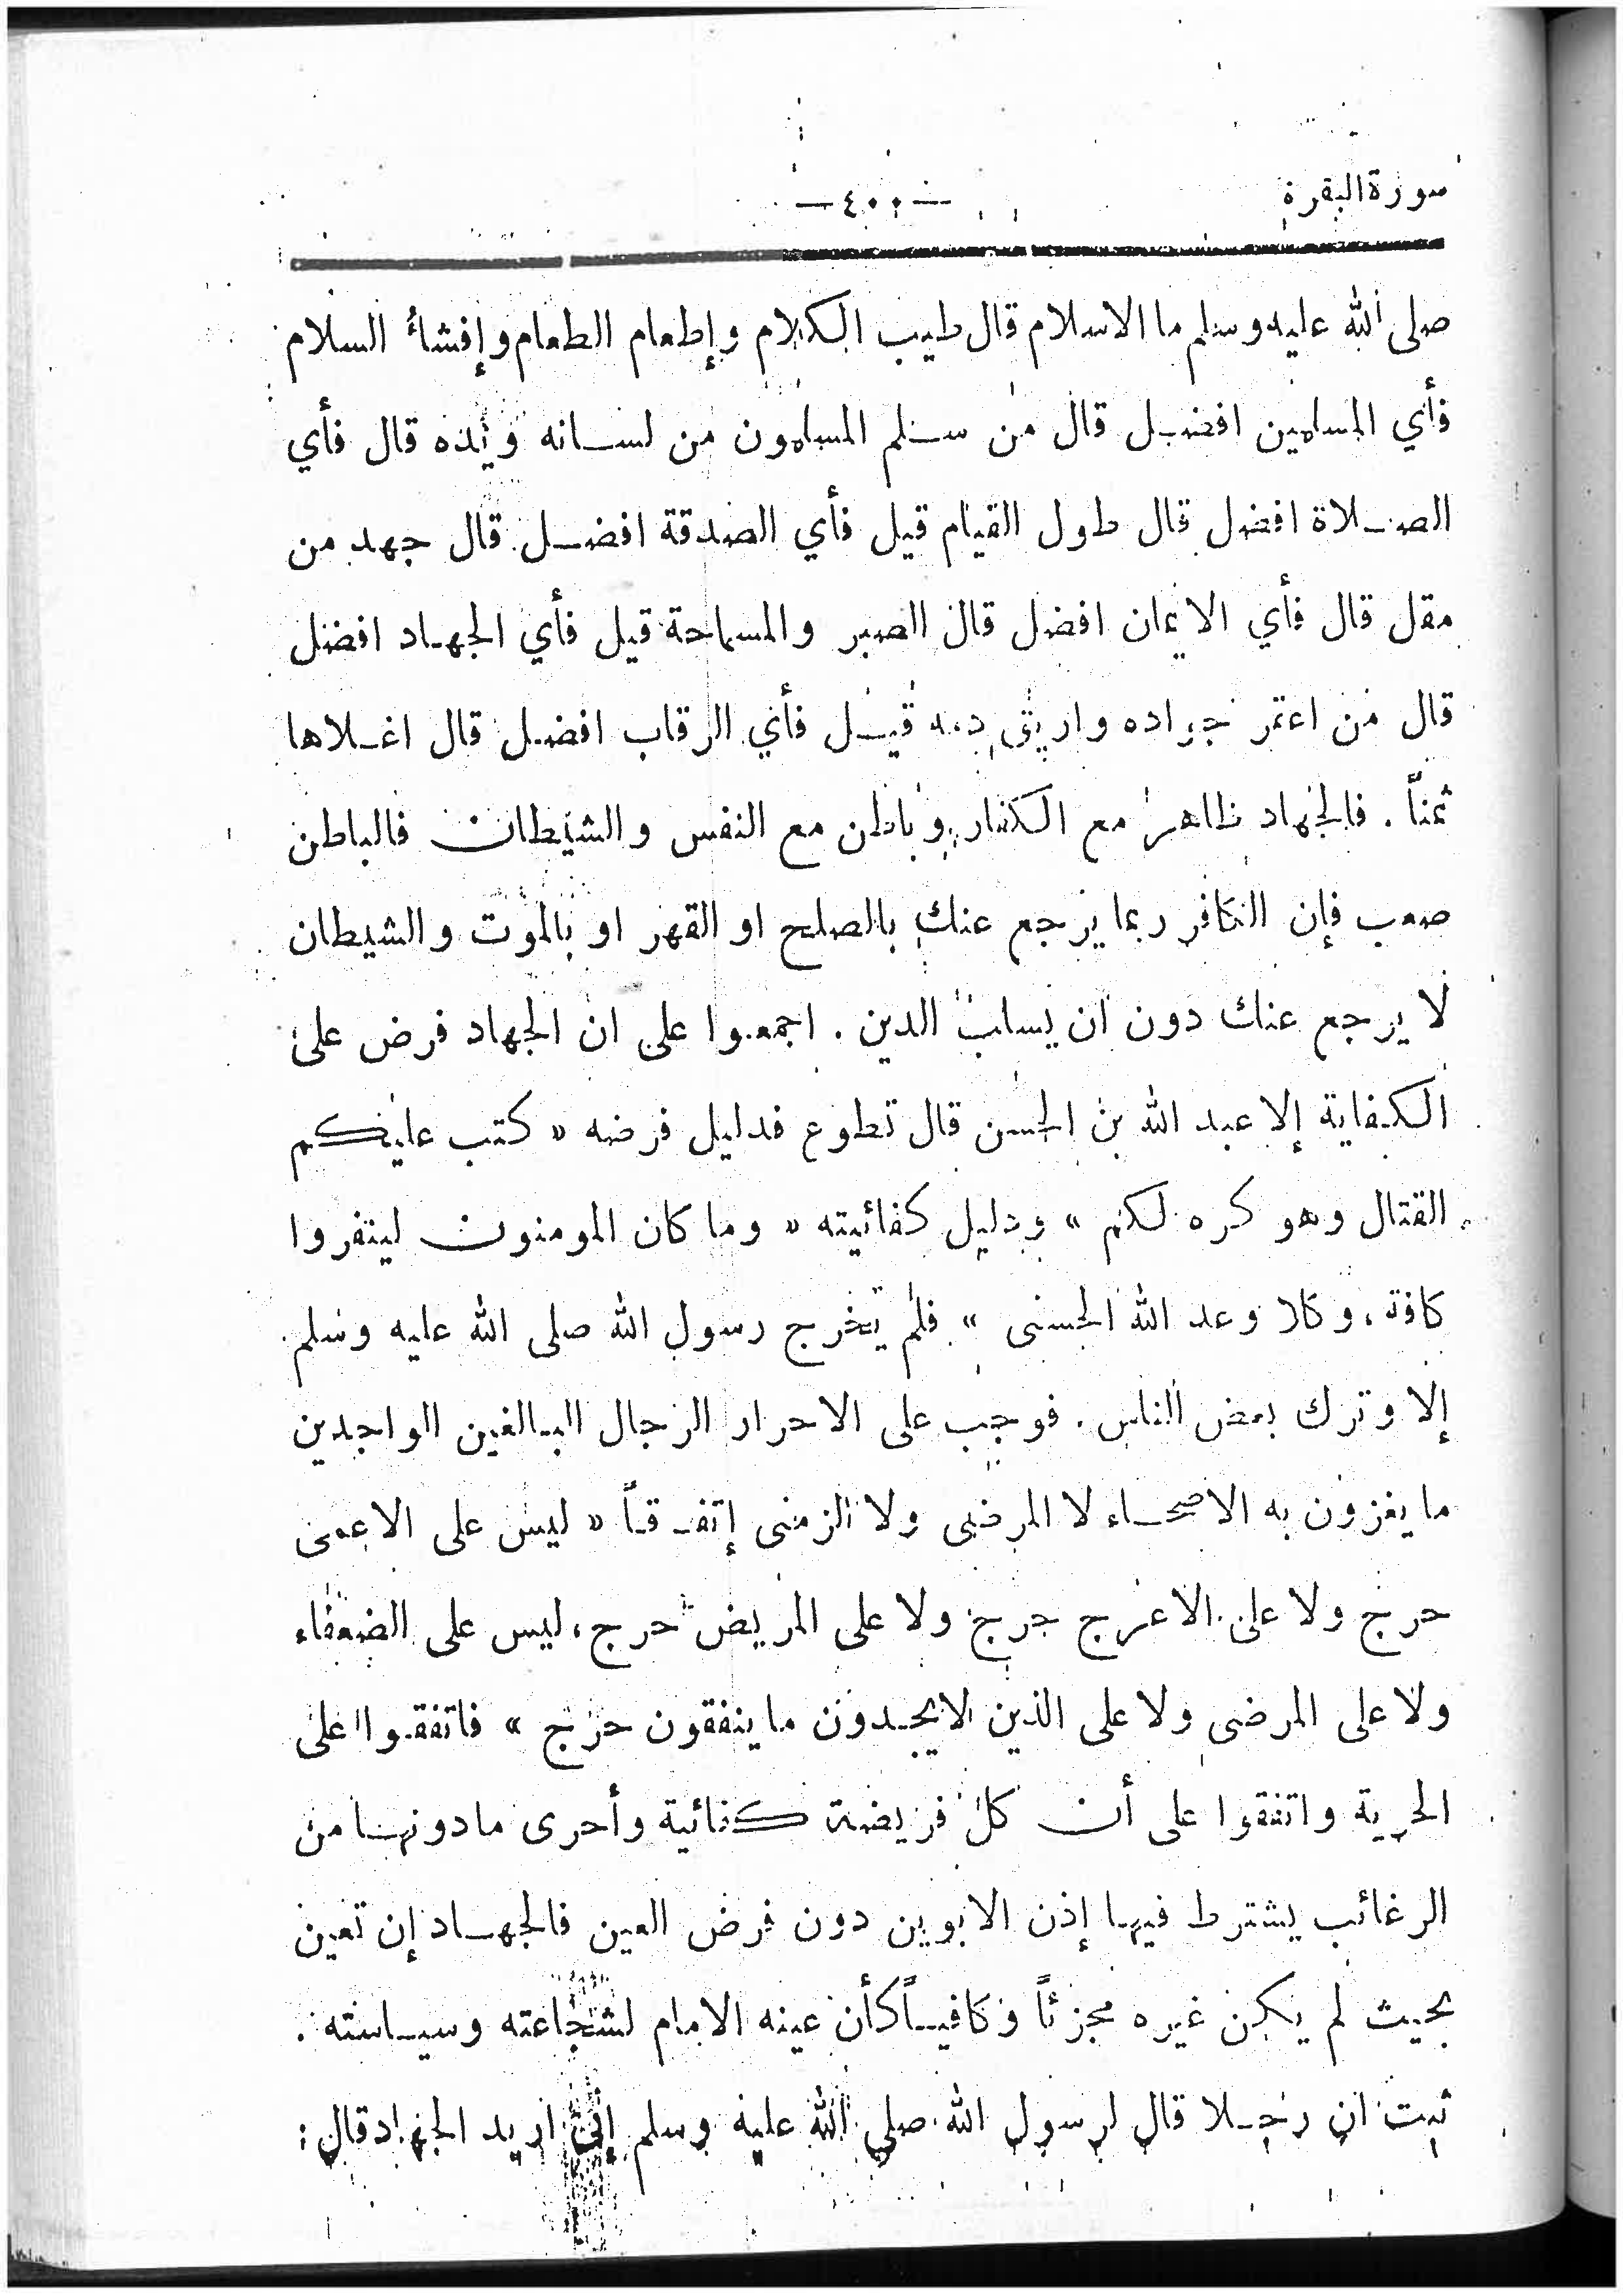 سورة البقرة
—٤٠٠—
صلى الله عليه وسلم ما الاسلام قال طيب الكلام وإطعام الطعام وإفشاء السلام
فأي المسلمين افضل قال من سلم المسلمون من لسانه ويده قال فأي
الصلاة افضل قال طول القيام قيل فأي الصدقة افضل قال جهد من
مقل قال فأي الايمان افضل قال الصبر والمسماحة قيل فأي الجهاد افضل
قال من اعتمر جواده واريق دمه قيل فأي الرقاب افضل قال اغلاها
ثمناً . فالجهاد ظاهر مع الكفار وباطن مع النفس والشيطان فالباطن
صعب فإن الكافر ربما يرجع عنك بالصلح او القهر او بالموت والشيطان
لا يرجع عنك دون ان يسلب الدين . اجمعوا على ان الجهاد فرض على
الكفاية إلا عبد الله بن الحسن قال تطوع فدليل فرضه « كتب عليكم
القتال وهو كره لكم » ودليل كفائيته « وما كان المومنون لينفروا
كافة ، وكلا وعد الله الحسنى » فلم يخرج رسول الله صلى الله عليه وسلم
إلا وترك بعض الناس . فوجب على الاحرار الرجال البالغين الواجدين
ما يغزون به الاصحاء لا المرضى ولا الزمنى إتفاقاً « ليس على الاعمى
حرج ولا على الاعرج حرج ولا على المريض حرج ، ليس على الضعفاء
ولا على المرضى ولا على الذين لا يجدون ما ينفقون حرج » فاتفقوا على
الحرية واتفقوا على أن كل فريضة كفائية وأحرى ما دونها من
الرغائب يشترط فيها إذن الابوين دون فرض العين فالجهاد إن تعين
بحيث لم يكن غيره مجزئاً وكافياً كأن عينه الامام لشجاعته وسياسته .
ثبت ان رجلا قال لرسول الله صلى الله عليه وسلم إني اريد الجهاد قال :